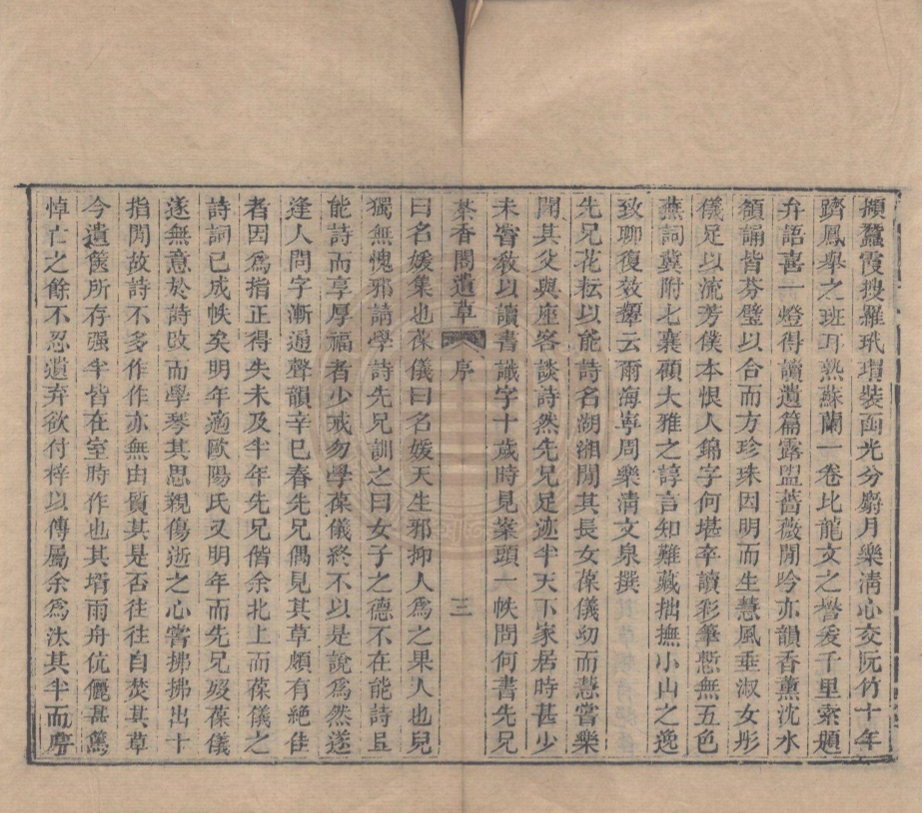 擷蠶霞搜羅玳瑁裝函光分麝月樂淸心交阮竹十年
躋鳳舉之班耳熟蘇蘭一卷比龍文之譽爰千里索題
弁語喜一燈得讀遺篇露盥薔薇閒吟亦韻香薰沈水
額誦皆芬璧以合而方珍珠因明而生慧風垂淑女彤
儀足以流芳僕本恨人錦字何堪卒讀彩筆慙無五色
燕詞冀附七襄顧大雅之諄言知難藏拙撫小山之逸
致聊復效顰云爾海寧周樂淸文泉撰
先兄花耘以能詩名湖湘閒其長女葆儀幼而慧嘗樂
聞其父與座客談詩然先兄足迹半天下家居時甚少
未嘗敎以讀書識字十歲時見案頭一帙問何書先兄
棻香閣遺草 序 三
曰名媛集也葆儀曰名媛天生邪抑人爲之果人也兒
獨無愧邪請學詩先兄訓之曰女子之德不在能詩且
能詩而享厚福者少戒勿學葆儀終不以是說爲然遂
逢人問字漸通聲韻辛巳春先兄偶見其草頗有絕佳
者因爲指正得失未及半年先兄偕余北上而葆儀之
詩詞已成帙矣明年適歐陽氏又明年而先兄歿葆儀
遂無意於詩改而學琴其思親傷逝之心嘗拂拂出十
指閒故詩不多作作亦無由質其是否往往自焚其草
今遺篋所存强半皆在室時作也其壻雨舟伉儷甚篤
悼亡之餘不忍遺弃欲付梓以傳屬余爲汰其半而序